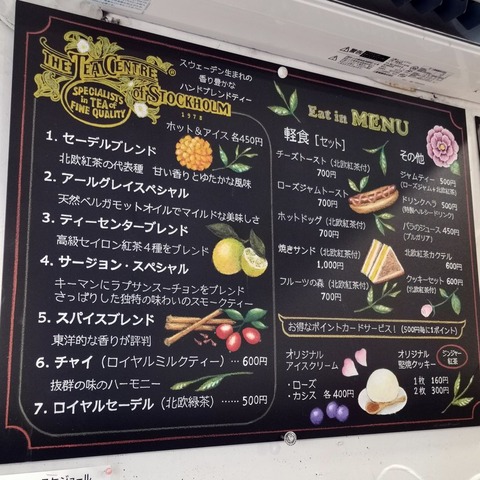 THE TEA CENTRE
of STOCKHOLM
SPECIALISTS
in TEA of
FINE QUALITY
1978
スウェーデン生まれの
香り豊かな
ハンドブレンドティー
ホット&アイス 各450円
1. セーデルブレンド
北欧紅茶の代表種 甘い香りとゆたかな風味
2. アールグレイスペシャル
天然ベルガモットオイルでマイルドな美味しさ
3. ティーセンターブレンド
高級セイロン紅茶4種をブレンド
4. サージョン・スペシャル
キーマンにラプサンスーチョンをブレンド
さっぱりした独特の味わいのスモークティー
5. スパイスブレンド
東洋的な香りが評判
6. チャイ(ロイヤルミルクティー)… 600円
抜群の味のハーモニー
7. ロイヤルセーデル(北欧緑茶)…… 500円
Eat in MENU
軽食[セット]
チーズトースト(北欧紅茶付)
700円
ローズジャムトースト
700円
ホットドッグ(北欧紅茶付)
700円
焼きサンド(北欧紅茶付)
1,000円
フルーツの森(北欧紅茶付)
700円
その他
ジャムティー 500円
(ローズジャム+北欧紅茶)
ドリンクヘラ 500円
(特製ヘルシードリンク)
バラのジュース 450円
(ブルガリア)
北欧紅茶カクテル
600円
クッキーセット 600円
(北欧紅茶付)
お得なポイントカードサービス!(500円毎に1ポイント)
オリジナル
アイスクリーム
・ローズ
・カシス 各400円
オリジナル
堅焼クッキー
1枚 160円
2枚 300円
ジンジャー
紅茶
スケジュール